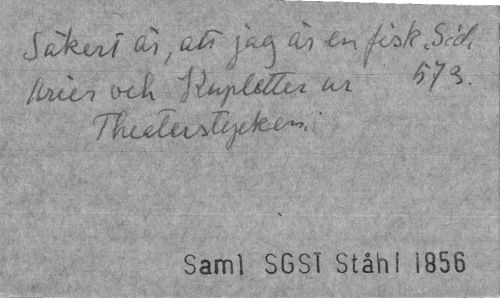 Säkert är, att jag är en fisk. Sid.
Arier och Kupletter ur 573.
Theaterstycken.
Saml SGST Ståhl 1856